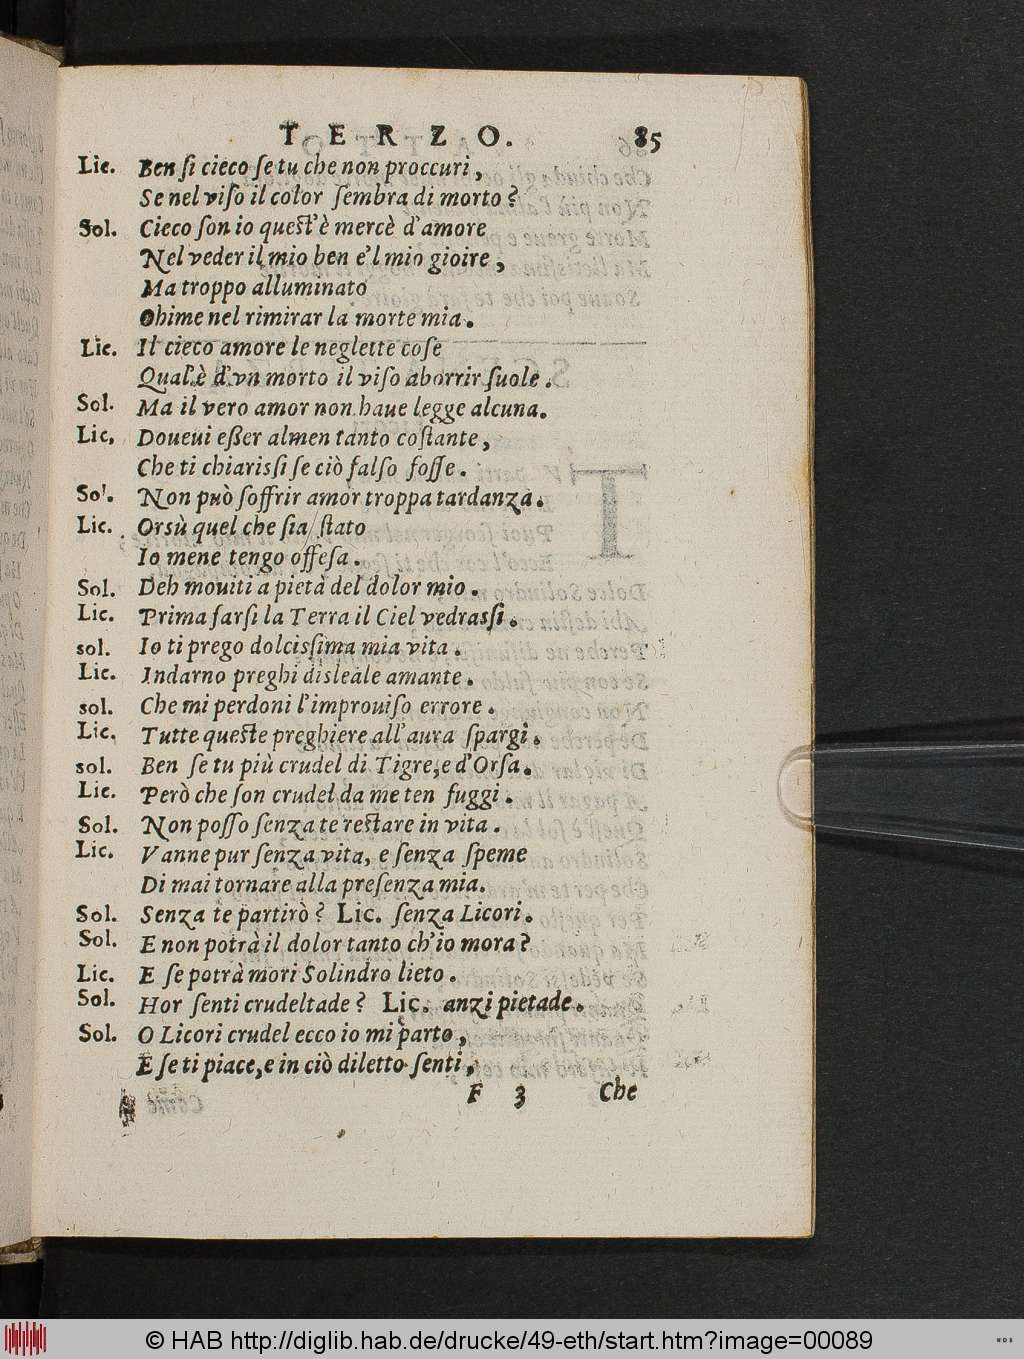 TERZO. 85
Lic. Ben ſi cieco ſe tu che non proccuri,
Se nel viſo il color ſembra di morto?
Sol. Cieco ſon io queſt'è mercè d'amore
Nel veder il mio ben e'l mio gioire,
Ma troppo alluminato
Ohime nel rimirar la morte mia.
Lic. Il cieco amore le neglette coſe
Qual'è d'vn morto il viſo aborrir ſuole.
Sol. Ma il vero amor non haue legge alcuna.
Lic. Doueui eßer almen tanto coſtante,
Che ti chiariſſi ſe ciò falſo foſſe.
Sol. Non può ſoffrir amor troppa tardanza.
Lic. Orsù quel che ſia ſtato
Io mene tengo offeſa.
Sol. Deh mouiti a pietà del dolor mio.
Lic. Prima farſi la Terra il Ciel vedraſſi.
sol. Io ti prego dolciſſima mia vita.
Lic. Indarno preghi disleale amante.
sol. Che mi perdoni l'improuiſo errore.
Lic. Tutte queſte preghiere all'aura ſpargi.
sol. Ben ſe tu più crudel di Tigre, e d'Orſa.
Lic. Però che ſon crudel da me ten fuggi.
Sol. Non poſſo ſenza te reſtare in vita.
Lic. Vanne pur ſenza vita, e ſenza ſpeme
Di mai tornare alla preſenza mia.
Sol. Senza te partirò? Lic. ſenza Licori.
Sol. E non potrà il dolor tanto ch'io mora?
Lic. E ſe potrà mori Solindro lieto.
Sol. Hor ſenti crudeltade? Lic. anzi pietade.
Sol. O Licori crudel ecco io mi parto,
E ſe ti piace, e in ciò diletto ſenti,
F 3 Che
© HAB http://diglib.hab.de/drucke/49-eth/start.htm?image=00089